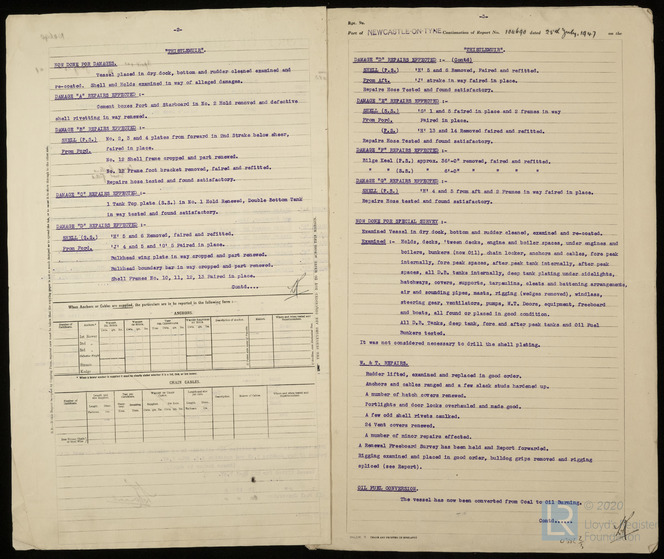 -2-
"THISTLEMUIR".
NOW DONE FOR DAMAGES.
Vessel placed in dry dock, bottom and rudder cleaned examined and
re-coated. Shell and Holds examined in way of alleged damages.
DAMAGE "A" REPAIRS EFFECTED :-
Cement boxes Port and Starboard in No. 2 Hold removed and defective
shell rivetting in way renewed.
DAMAGE "B" REPAIRS EFFECTED :-
SHELL (P.S.) No. 2, 3 and 4 plates from forward in 2nd Strake below sheer,
From Ford. faired in place.
No. 12 Shell frame cropped and part renewed.
No. 12 Frame foot bracket removed, faired and refitted.
Repairs hose tested and found satisfactory.
DAMAGE "C" REPAIRS EFFECTED :-
1 Tank Top plate (S.S.) in No. 1 Hold Renewed, Double Bottom Tank
in way tested and found satisfactory.
DAMAGE "D" REPAIRS EFFECTED :-
SHELL (S.S.) 'H' 2 and 5 Removed, faired and refitted.
From Ford. 'J' 4 and 5 and 'G' 2 Faired in place.
Bulkhead wing plate in way cropped and part renewed.
Bulkhead boundary bar in way cropped and part renewed.
Shell Frames No. 10, 11, 12, 13 Faired in place.
Contd....
When Anchors or Cables are supplied, the particulars are to be reported in the following form :-
ANCHORS.
CHAIN CABLES.
-1-
Rpt. No.
Port of NEWCASTLE-ON-TYNE Continuation of Report No. 104690 dated 25th July, 1947 on the
"THISTLEMUIR".
DAMAGE "D" REPAIRS EFFECTED :- (Contd)
SHELL (P.S.) 'H' 2 and 3 Removed, Faired and refitted.
From Aft. 'J' strake in way faired in place.
Repairs Hose Tested and found satisfactory.
DAMAGE "E" REPAIRS EFFECTED :-
SHELL (S.S.) 'G' 1 and 2 faired in place and 2 frames in way
From Ford. Faired in place.
(P.S.) 'H' 13 and 14 Removed faired and refitted.
Repairs Hose Tested and found satisfactory.
DAMAGE "F" REPAIRS EFFECTED :-
Bilge Keel (P.S.) approx. 24'-0" removed, faired and refitted.
" " (S.S.) " 6'-0" " " " "
DAMAGE "G" REPAIRS EFFECTED :-
SHELL (P.S.) 'H' 4 and 5 from aft and 2 Frames in way faired in place.
Repairs Hose Tested and found satisfactory.
NOW DONE FOR SPECIAL SURVEY :-
Examined Vessel in dry dock, bottom and rudder cleaned, examined and re-coated.
Examined :- Holds, decks, 'tween decks, engine and boiler spaces, under engines and
boilers, bunkers (now Oil), chain locker, anchors and cables, fore peak
internally, fore peak spaces, after peak tank internally, after peak
spaces, all D.B. tanks internally, deep tank plating under sidelights,
hatchways, covers, supports, tarpaulins, cleats and battening arrangements,
air and sounding pipes, masts, rigging (wedges removed), windlass,
steering gear, ventilators, pumps, W.T. Doors, equipment, Freeboard
and boats, all found or placed in good condition.
All D.B. Tanks, deep tank, fore and after peak tanks and Oil Fuel
Bunkers tested.
It was not considered necessary to drill the shell plating.
W. & T. REPAIRS.
Rudder lifted, examined and replaced in good order.
Anchors and cables ranged and a few slack studs hardened up.
A number of hatch covers renewed.
Portlights and door locks overhauled and made good.
A few odd shell rivets caulked.
24 Vent covers renewed.
A number of minor repairs effected.
A Renewal Freeboard Survey has been held and Report forwarded.
Rigging examined and placed in good order, bulldog grips removed and rigging
spliced (see Report).
OIL FUEL CONVERSION.
The vessel has now been converted from Coal to Oil Burning.
Contd......
© 2020
Lloyd's Register
Foundation